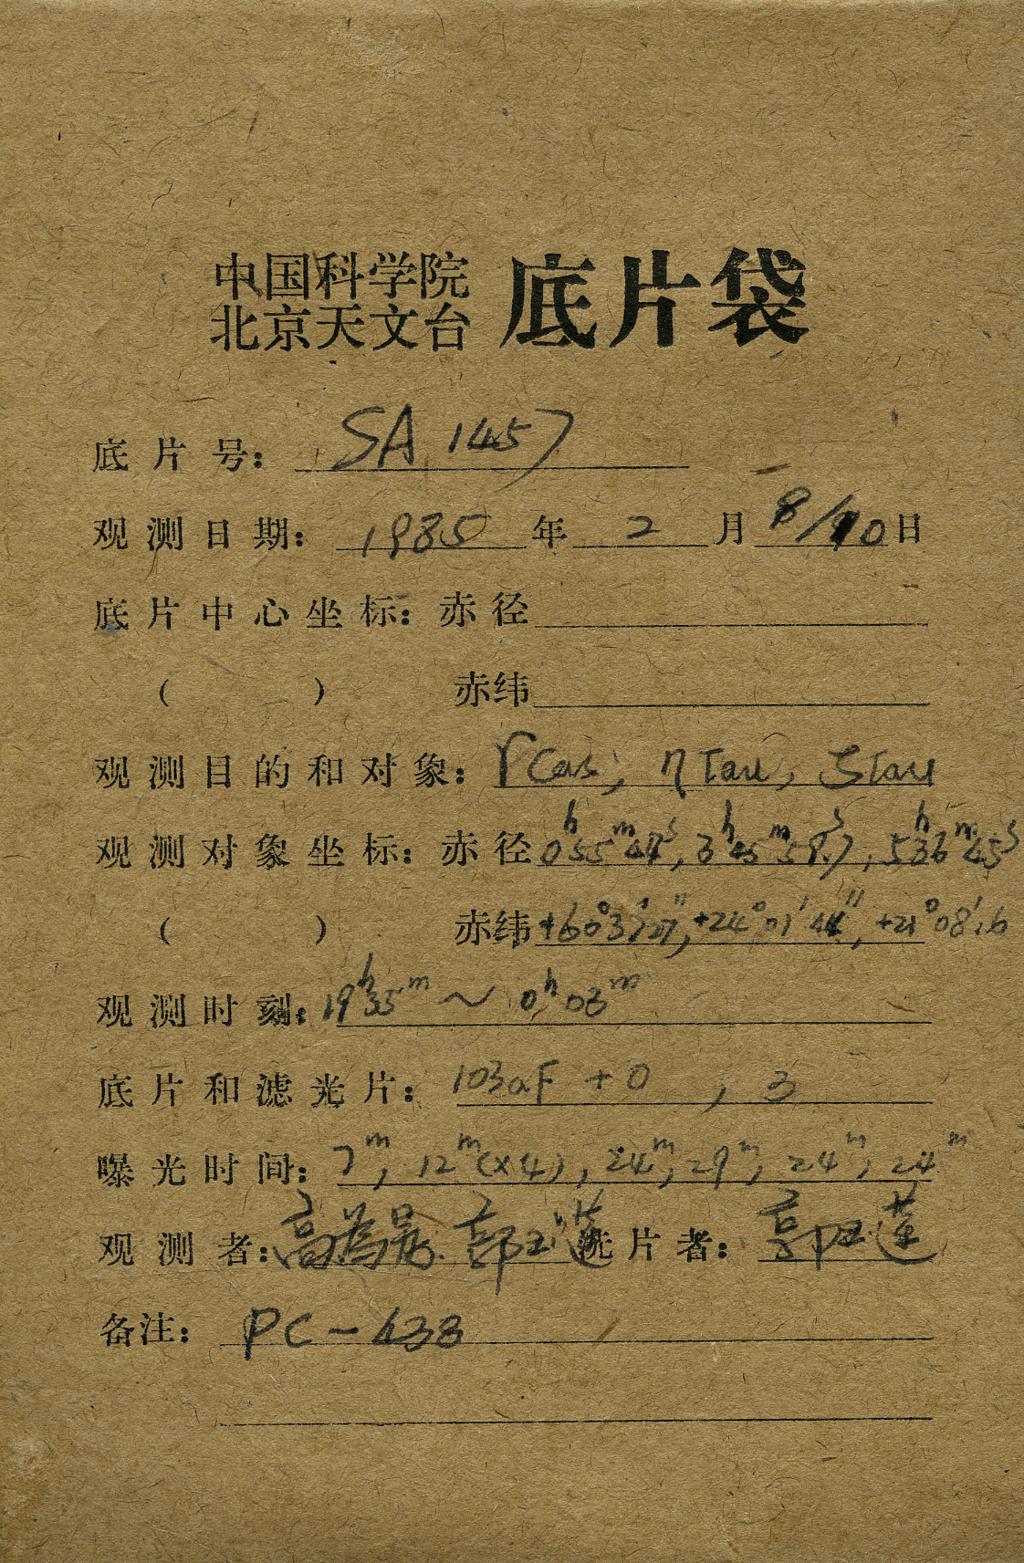 中国科学院
北京天文台 底片袋
底片号: SA 1457
观测日期: 1985 年 2 月 8/10 日
底片中心坐标: 赤径
( ) 赤纬
观测目的和对象: γCas, ηTau, ζTau
观测对象坐标: 赤径 0ʰ55ᵐ47ˢ, 3ʰ45ᵐ59ˢ.7, 5ʰ36ᵐ45ˢ
( ) 赤纬 +60°37′27″, +24°01′44″, +21°08′.6
观测时刻: 19ʰ35ᵐ ~ 0ʰ03ᵐ
底片和滤光片: 103aF + 0 , 3
曝光时间: 7ᵐ, 12ᵐ(×4), 24ᵐ, 29ᵐ, 24ᵐ, 24ᵐ
观测者: 郭玉莲 洗片者: 郭玉莲
备注: PC-433